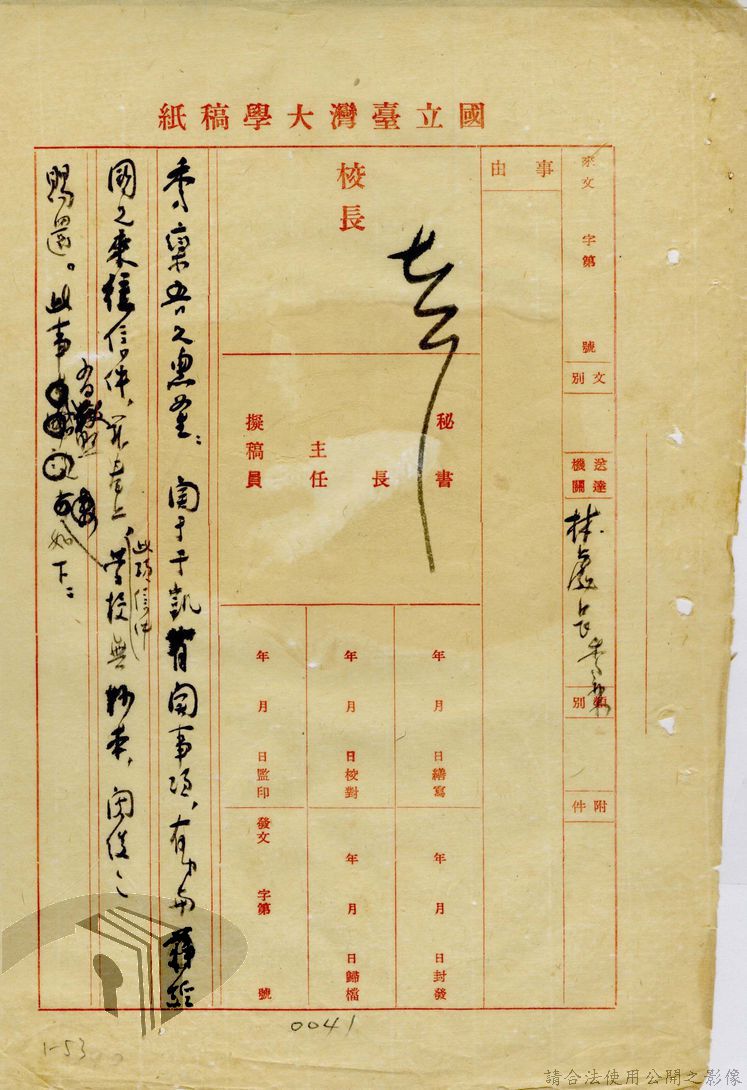 國立臺灣大學稿紙
來文 字第 號
文別
送達機關
林處長秀欒
類別
附件
事由
校長
秘書長
主任
擬稿員
年 月 日繕寫
年 月 日校對
年 月 日監印
年 月 日封發
年 月 日歸檔
發文 字第 號
秀欒吾兄惠鑒：關于于凱有關事項，有弟與蔣經
國之來往信件，茲奉上（此項信件學校無抄本，閱後乞
賜還。此事 如下：
0041
1-53
請合法使用公開之影像